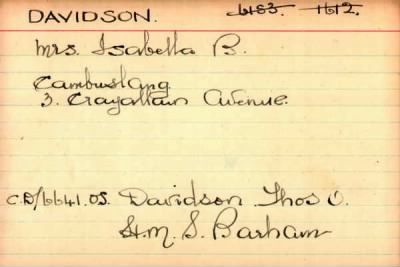 DAVIDSON. 6183. 1612.
Mrs. Isabella B.
Cambuslang
3. Avenue.
C.D/6641.OS. Davidson. Thos O.
H.M.S. Barham